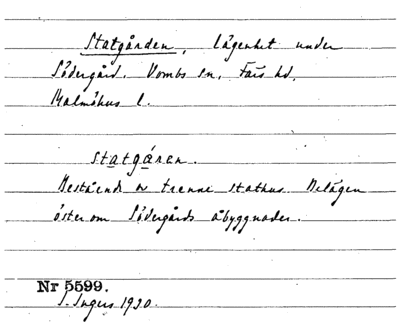 Statgården, lägenhet under
Södergård. Vombs sn, Färs hd,
Malmöhus l.
statgåren.
Bestående av trenne stathus. Belägen
öster om Södergårds åbyggnader.
Nr 5599.
S. Ingers 1920.